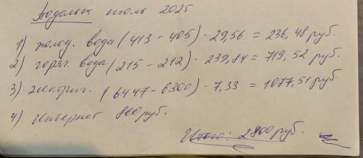 Подольск июль 2025
1) холод. вода (413 - 405) · 29,56 = 236,48 руб.
2) горяч. вода (215 - 212) · 239,84 = 719,52 руб.
3) электрич. (6447 - 6300) · 7,33 = 1077,51 руб
4) Интернет 800 руб.
Итого: 2800 руб.